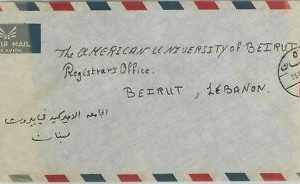 AIR MAIL
The AMERICAN UNIVERSITY OF BEIRUT
Registrar's Office.
BEIRUT, LEBANON.
الجامعه الاميركيه في بيروت
لبنان